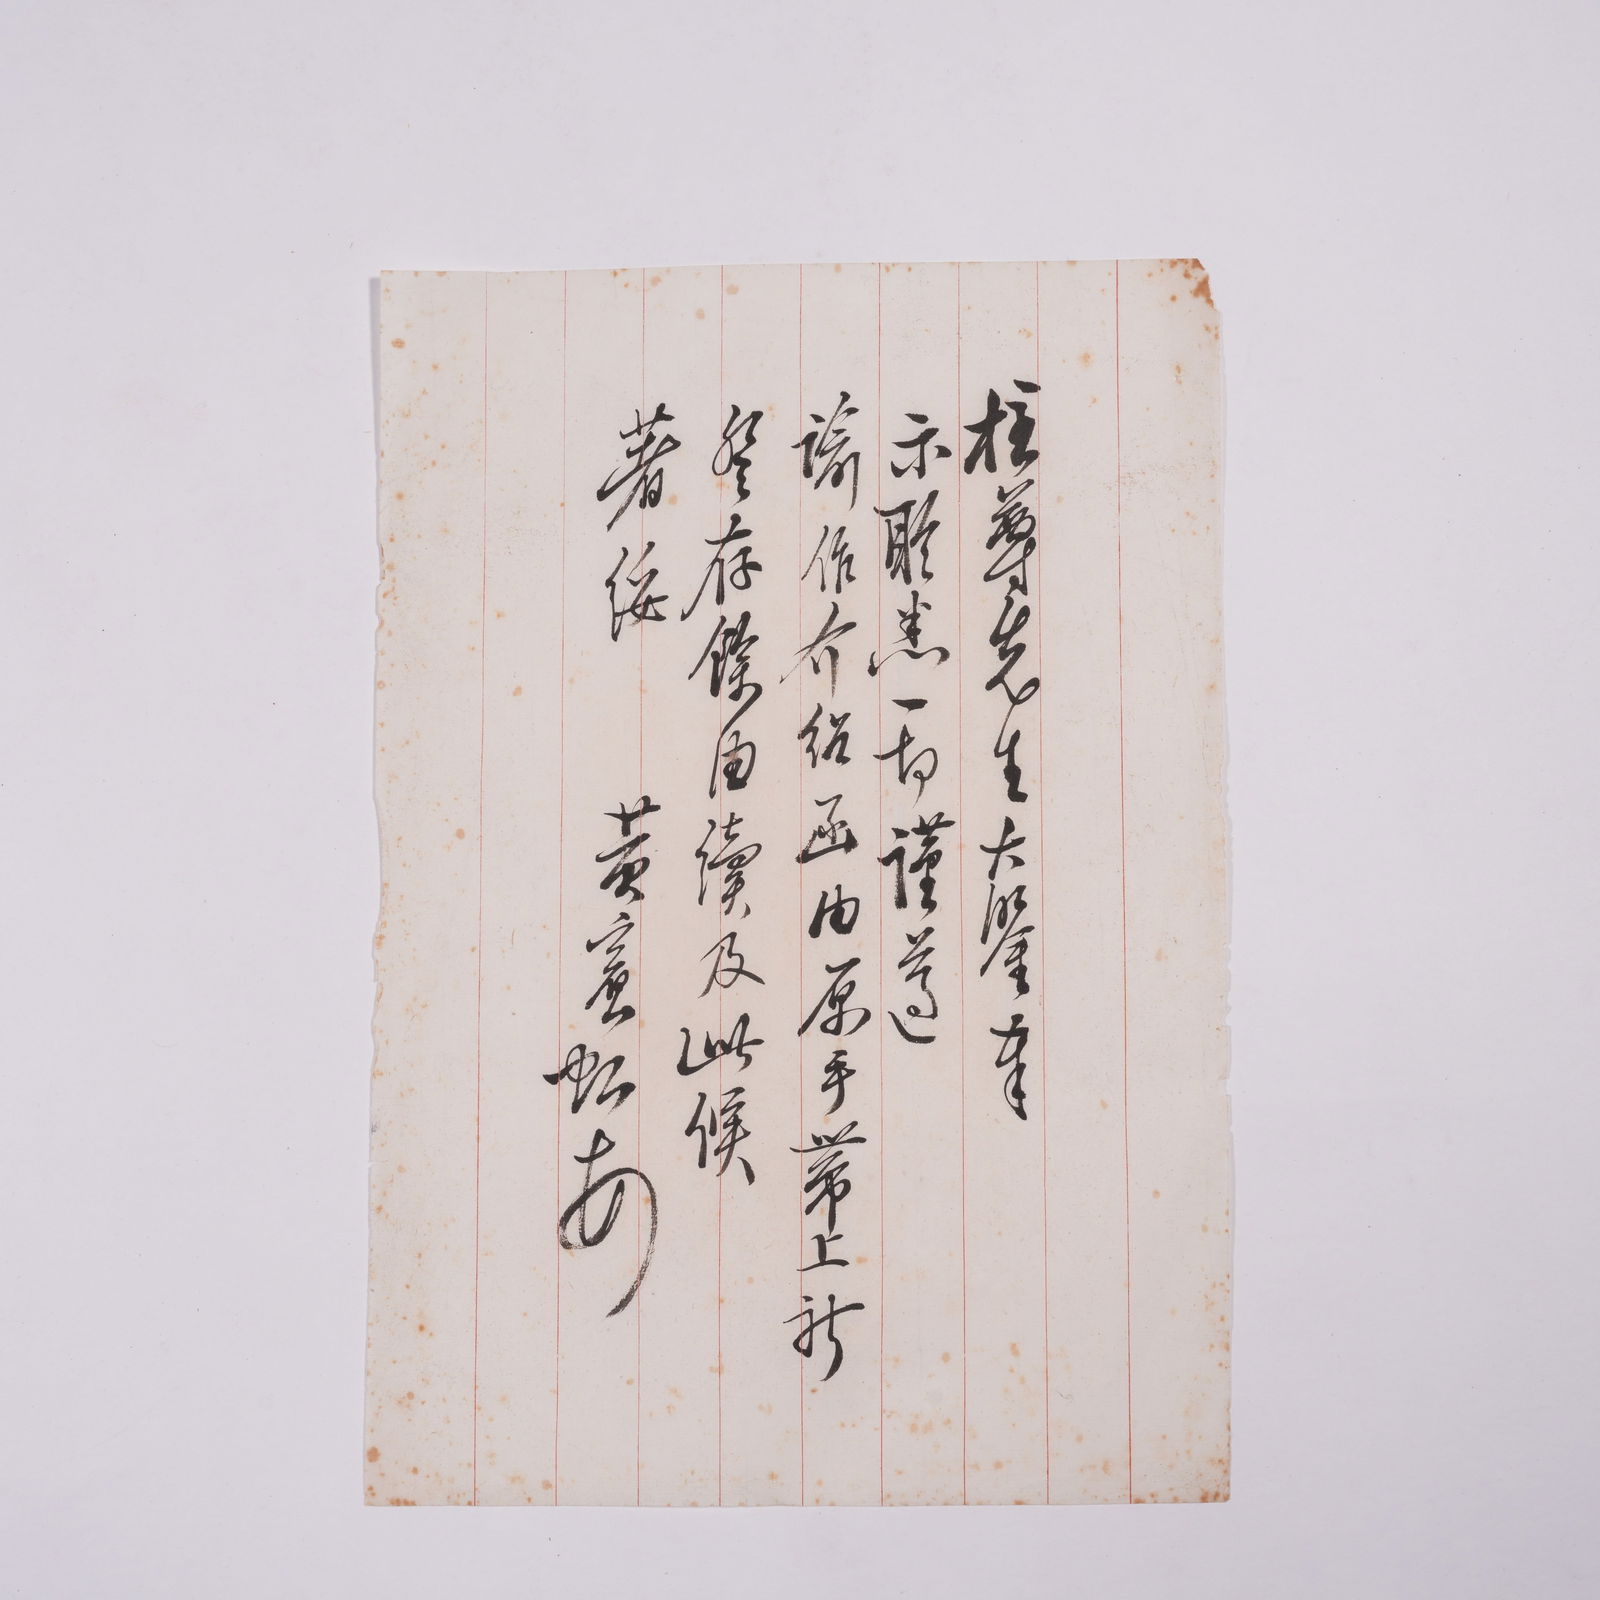 柱尊先生大鑒奉
示聆悉一切謹遵
諭作介紹函由原手帶上祈
詧存餘由續及此候
著綏
黃賓虹